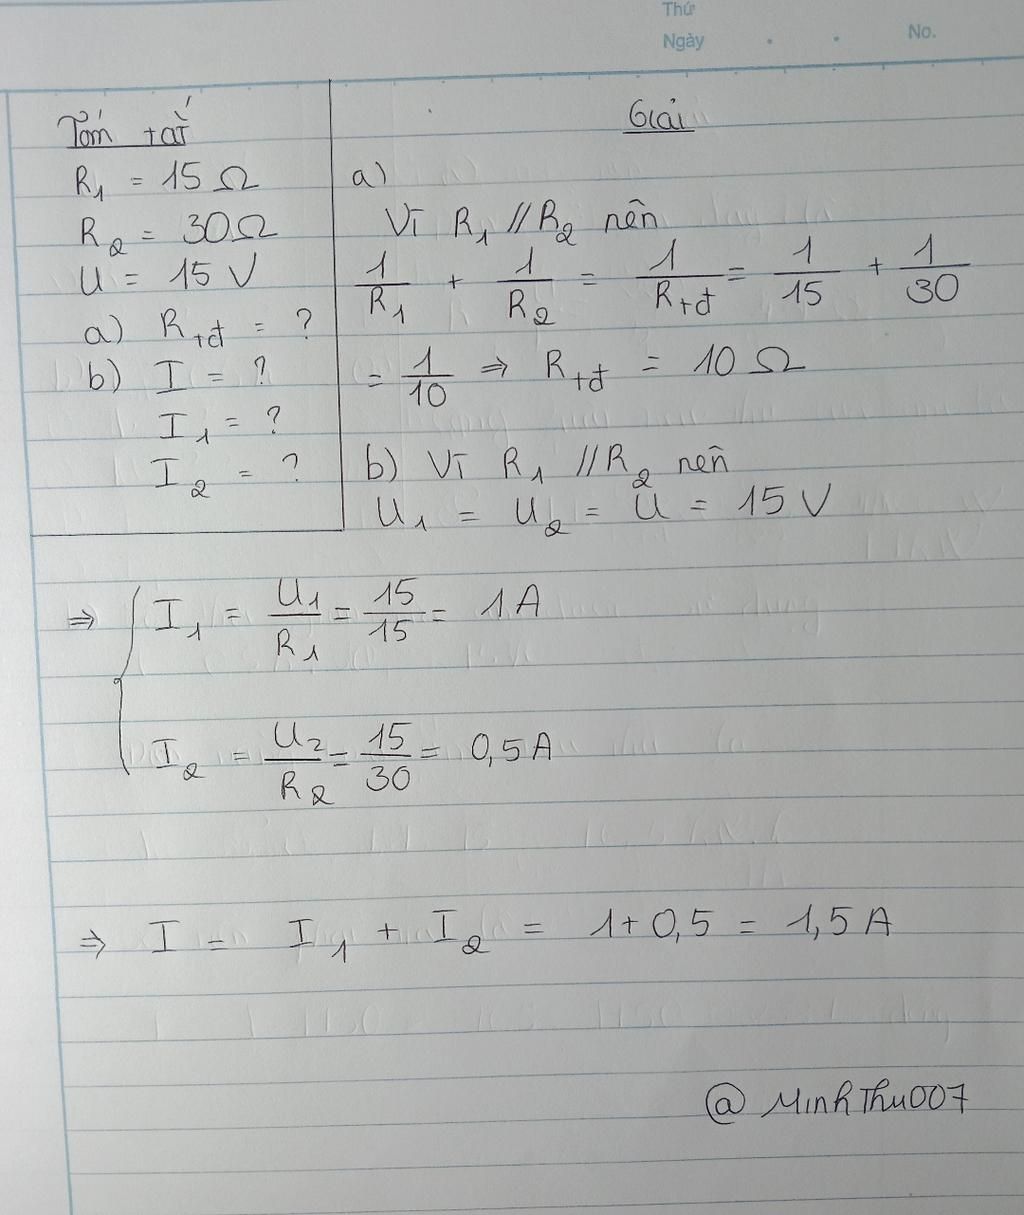 Thứ
Ngày . . No.
Tóm tắt
R₁ = 15 Ω
R₂ = 30Ω
U = 15 V
a) Rtđ = ?
b) I = ?
I₁ = ?
I₂ = ?
Giải
a)
Vì R₁ // R₂ nên
1/R₁ + 1/R₂ = 1/Rtđ = 1/15 + 1/30
= 1/10 ⇒ Rtđ = 10 Ω
b) Vì R₁ // R₂ nên
U₁ = U₂ = U = 15 V
⇒ { I₁ = U₁/R₁ = 15/15 = 1 A
I₂ = U₂/R₂ = 15/30 = 0,5 A
⇒ I = I₁ + I₂ = 1 + 0,5 = 1,5 A
@ MinhThu007